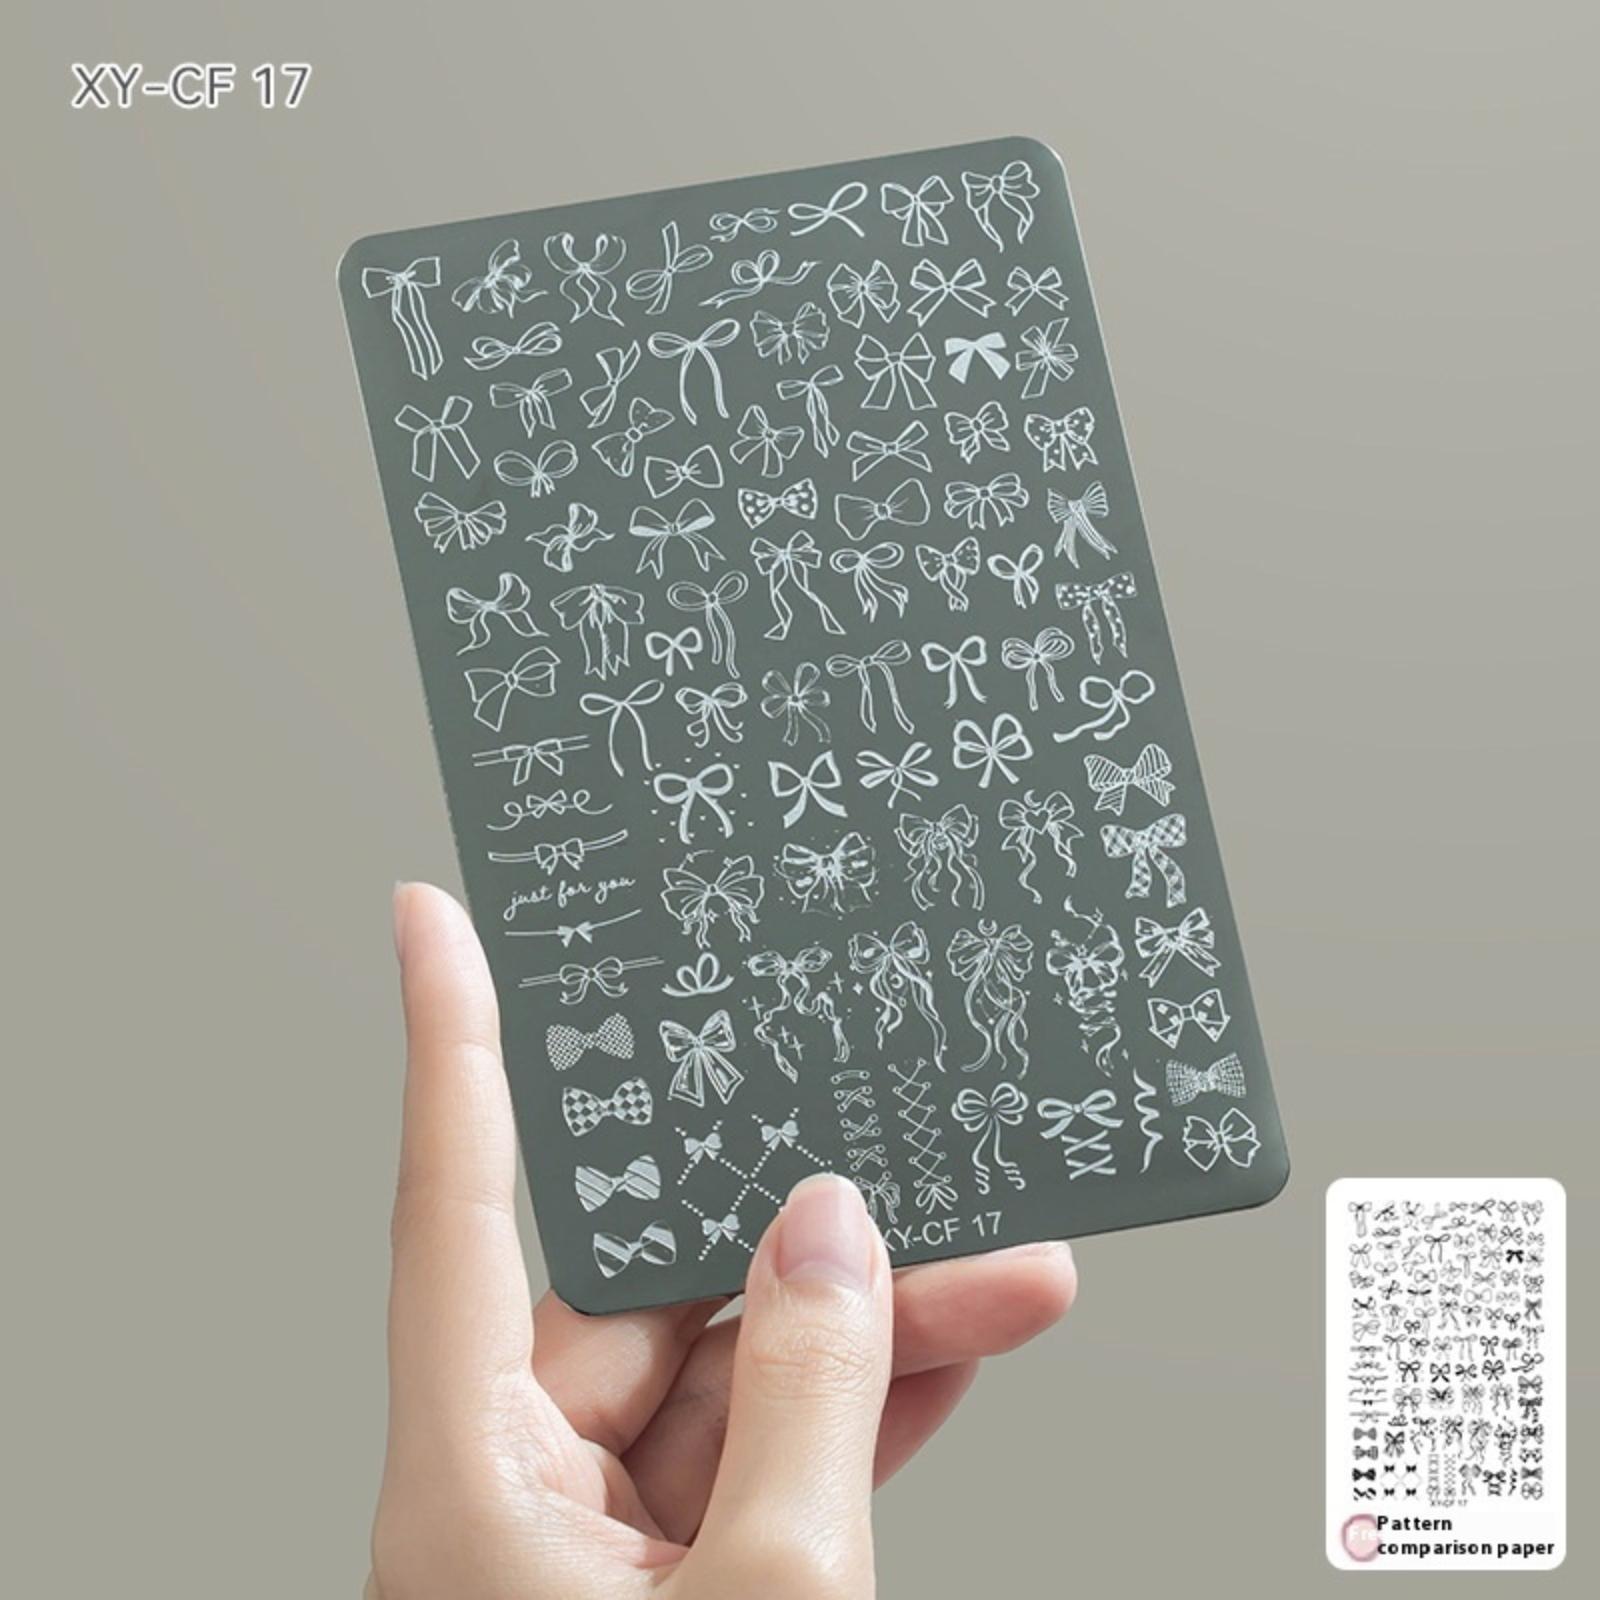 XY-CF 17
just for you
XY-CF 17
XY-CF 17
Free
Pattern
comparison paper